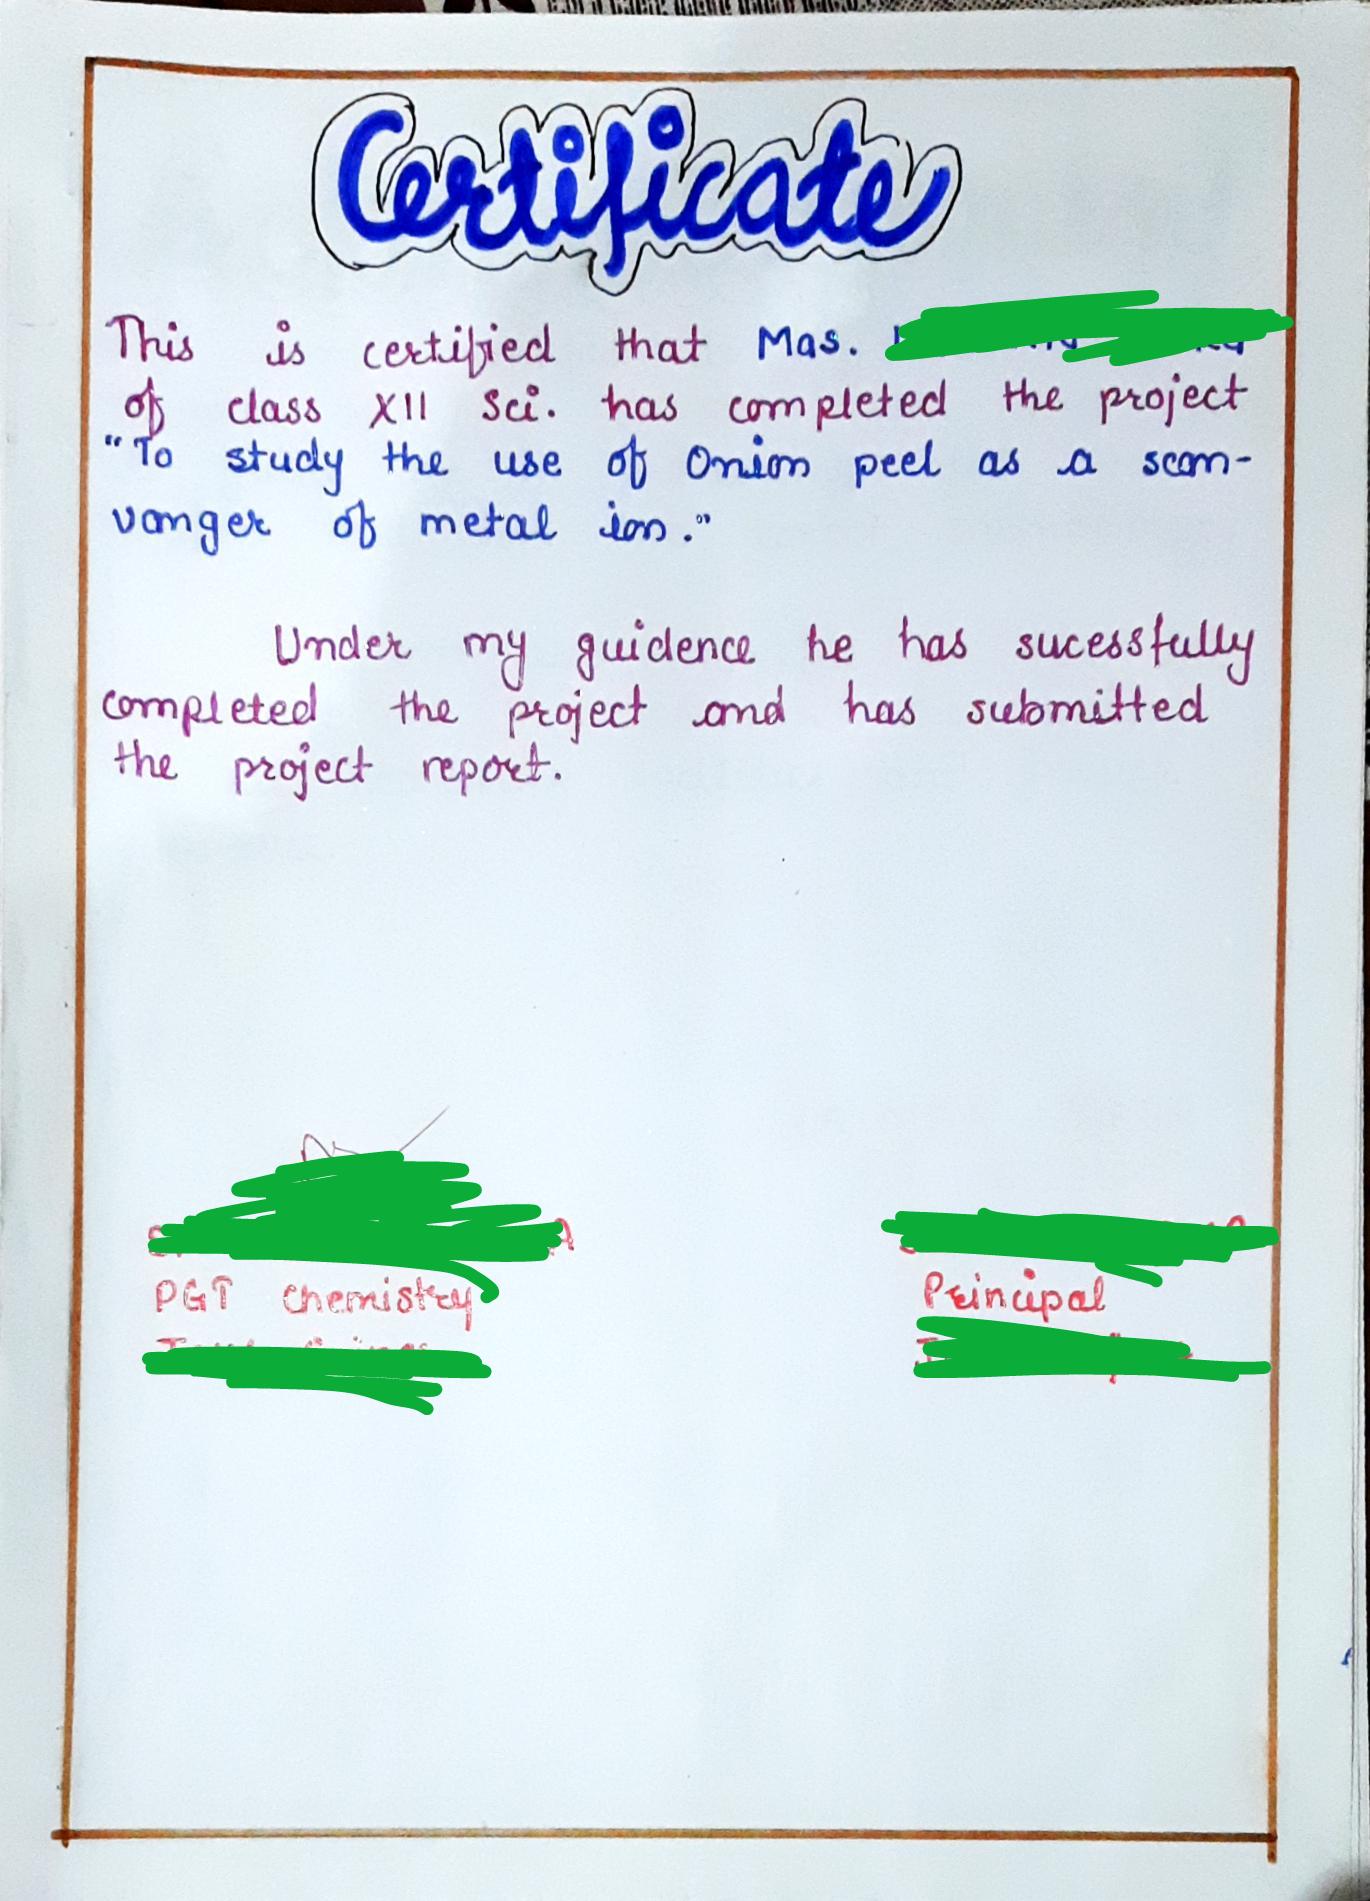 Certificate
This is certified that Mas.
of class XII Sci. has completed the project
"To study the use of Onion peel as a scan-
vanger of metal ion."
Under my guidence he has sucessfully
completed the project and has submitted
the project report.
PGT Chemistry
Principal